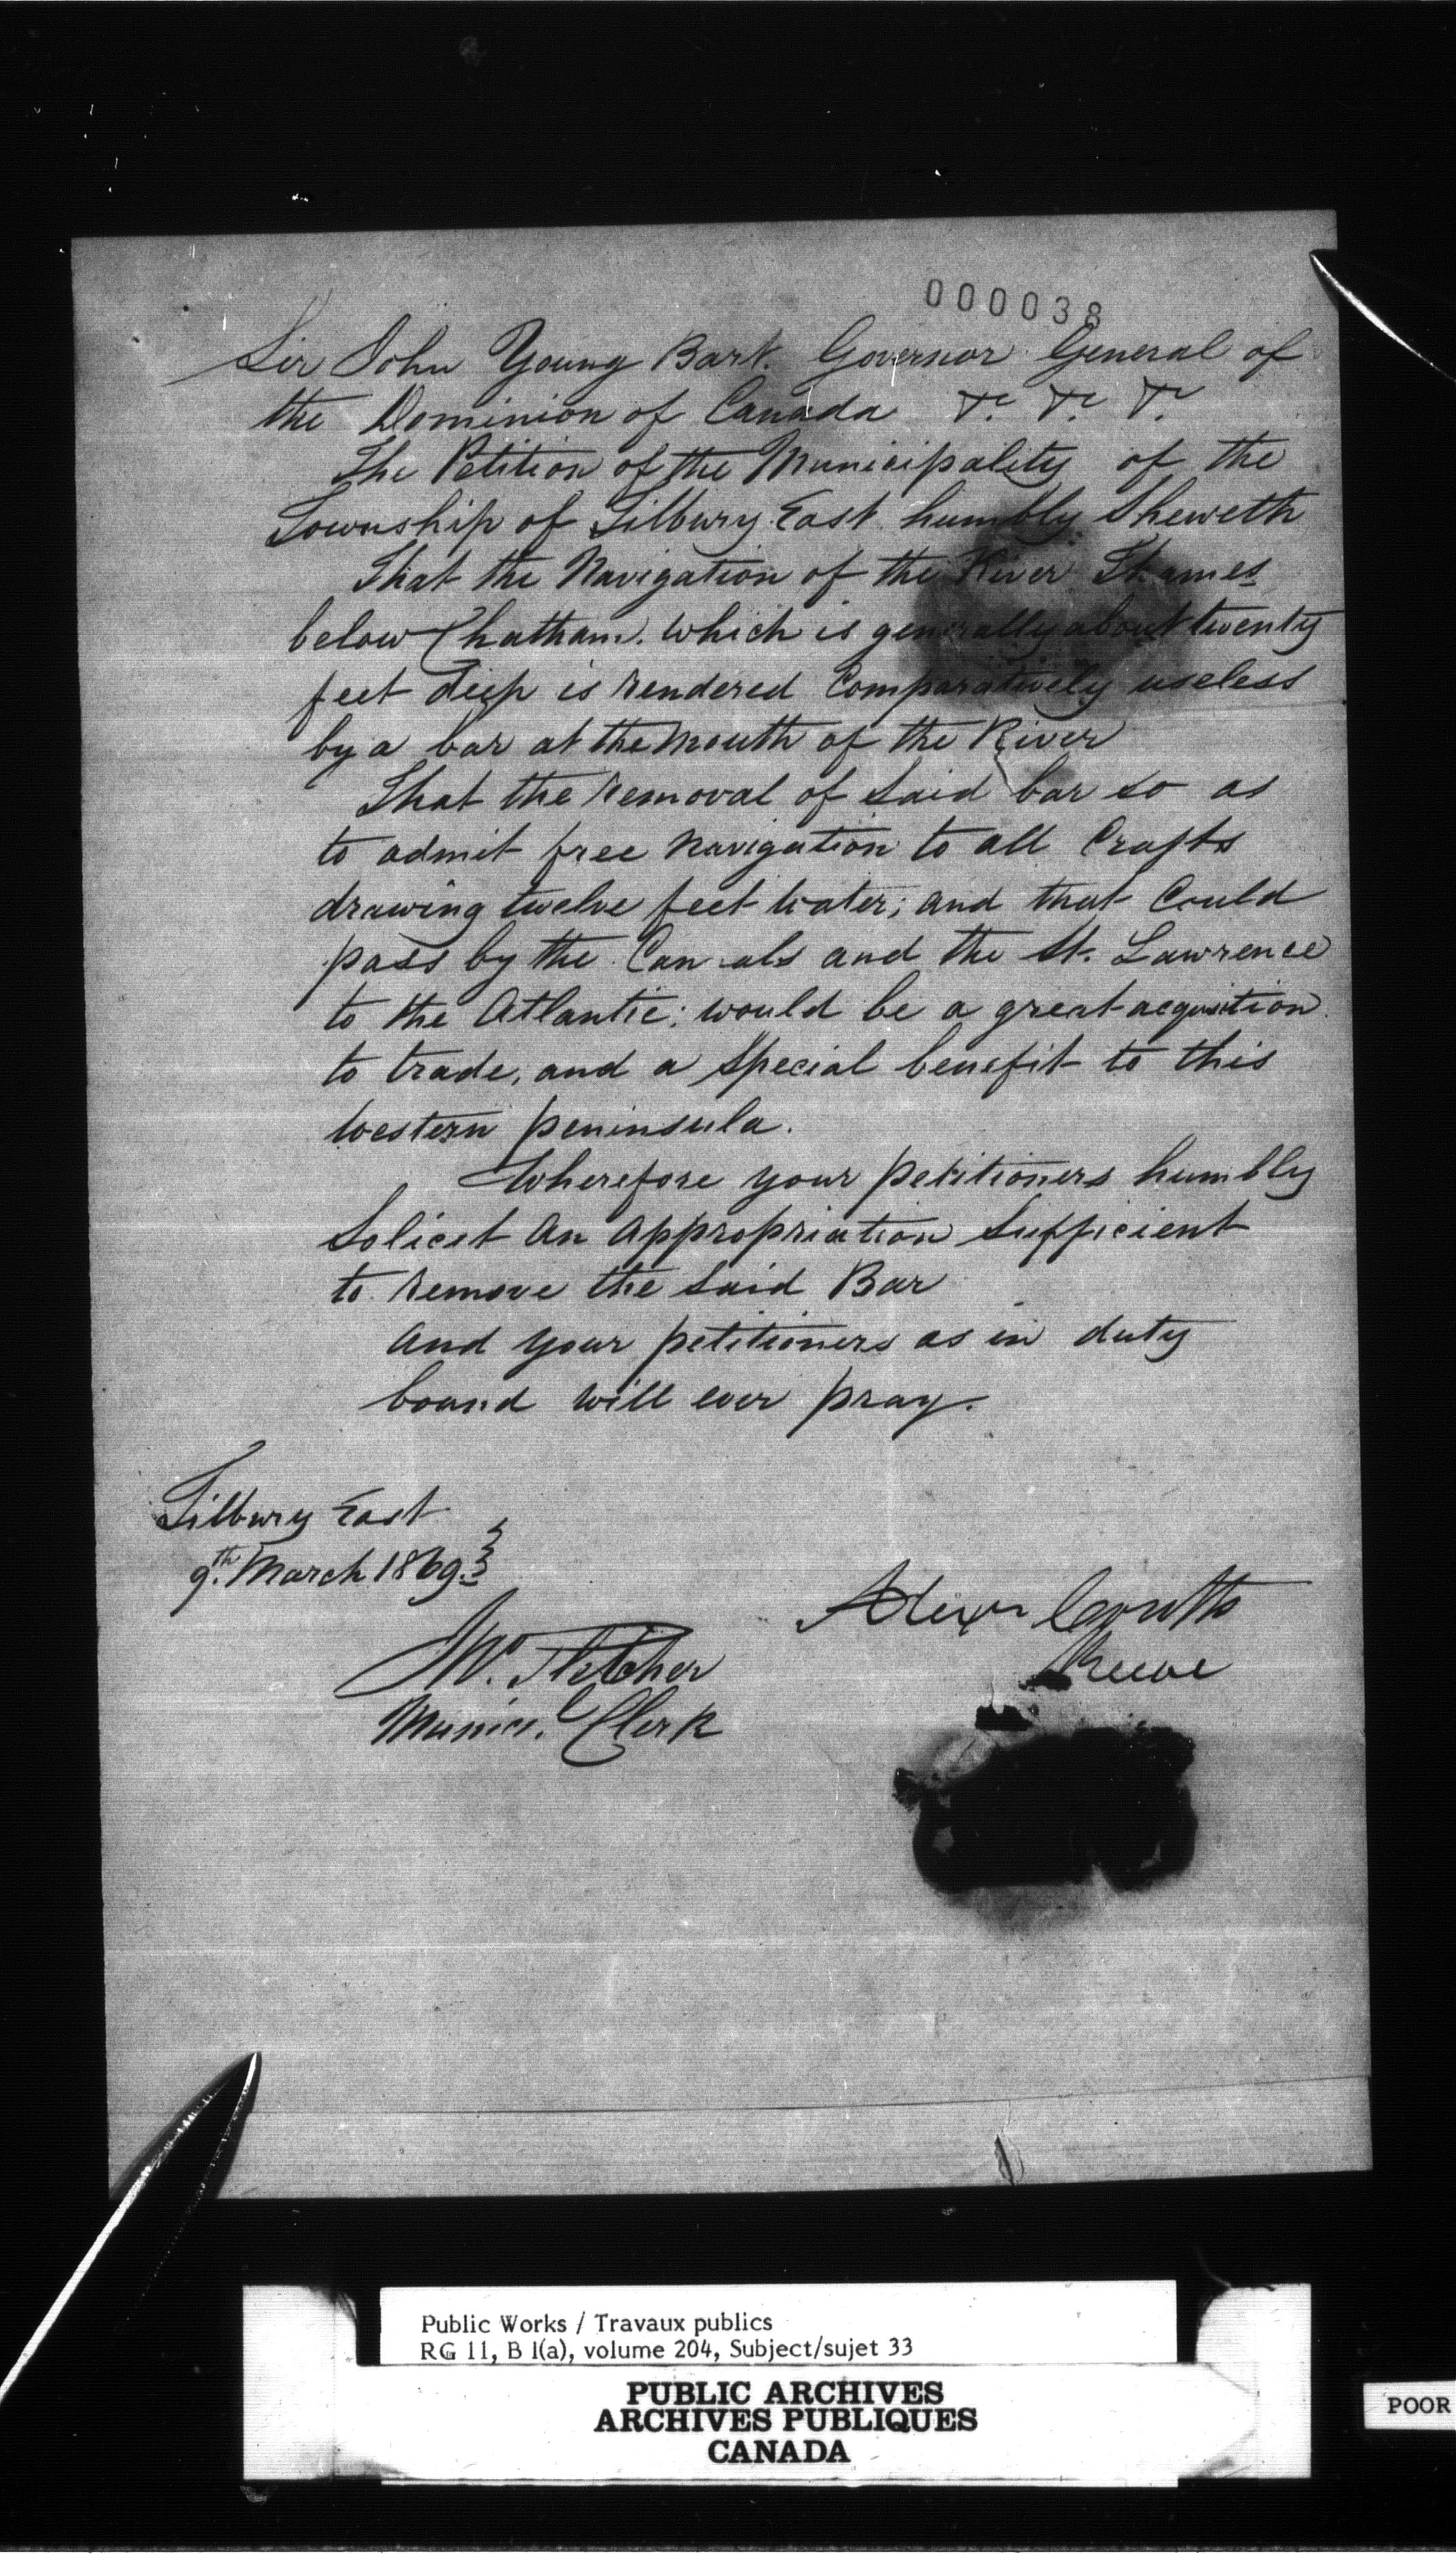 000038
Sir John Young Bart. Governor General of
the Dominion of Canada &c &c &c
The Petition of the Municipality of the
Township of Tilbury East humbly Sheweth
That the Navigation of the River Thames
below Chatham. which is generally about twenty
feet deep is rendered Comparatively useless
by a bar at the mouth of the River
That the removal of said bar so as
to admit free navigation to all Crafts
drawing twelve feet water; and that Could
pass by the Canals and the St. Lawrence
to the Atlantic; would be a great acquisition
to trade, and a Special benefit to this
western peninsula.
Wherefore your petitioners humbly
Solicit An Appropriation Sufficient
to remove the said Bar
And your petitioners as in duty
bound will ever pray.
Tilbury East
9th. March 1869.
Alexr Coutts
Reeve
Wm. Fletcher
Munici. Clerk
Public Works / Travaux publics
RG 11, B 1(a), volume 204, Subject/sujet 33
PUBLIC ARCHIVES
ARCHIVES PUBLIQUES
CANADA
POOR